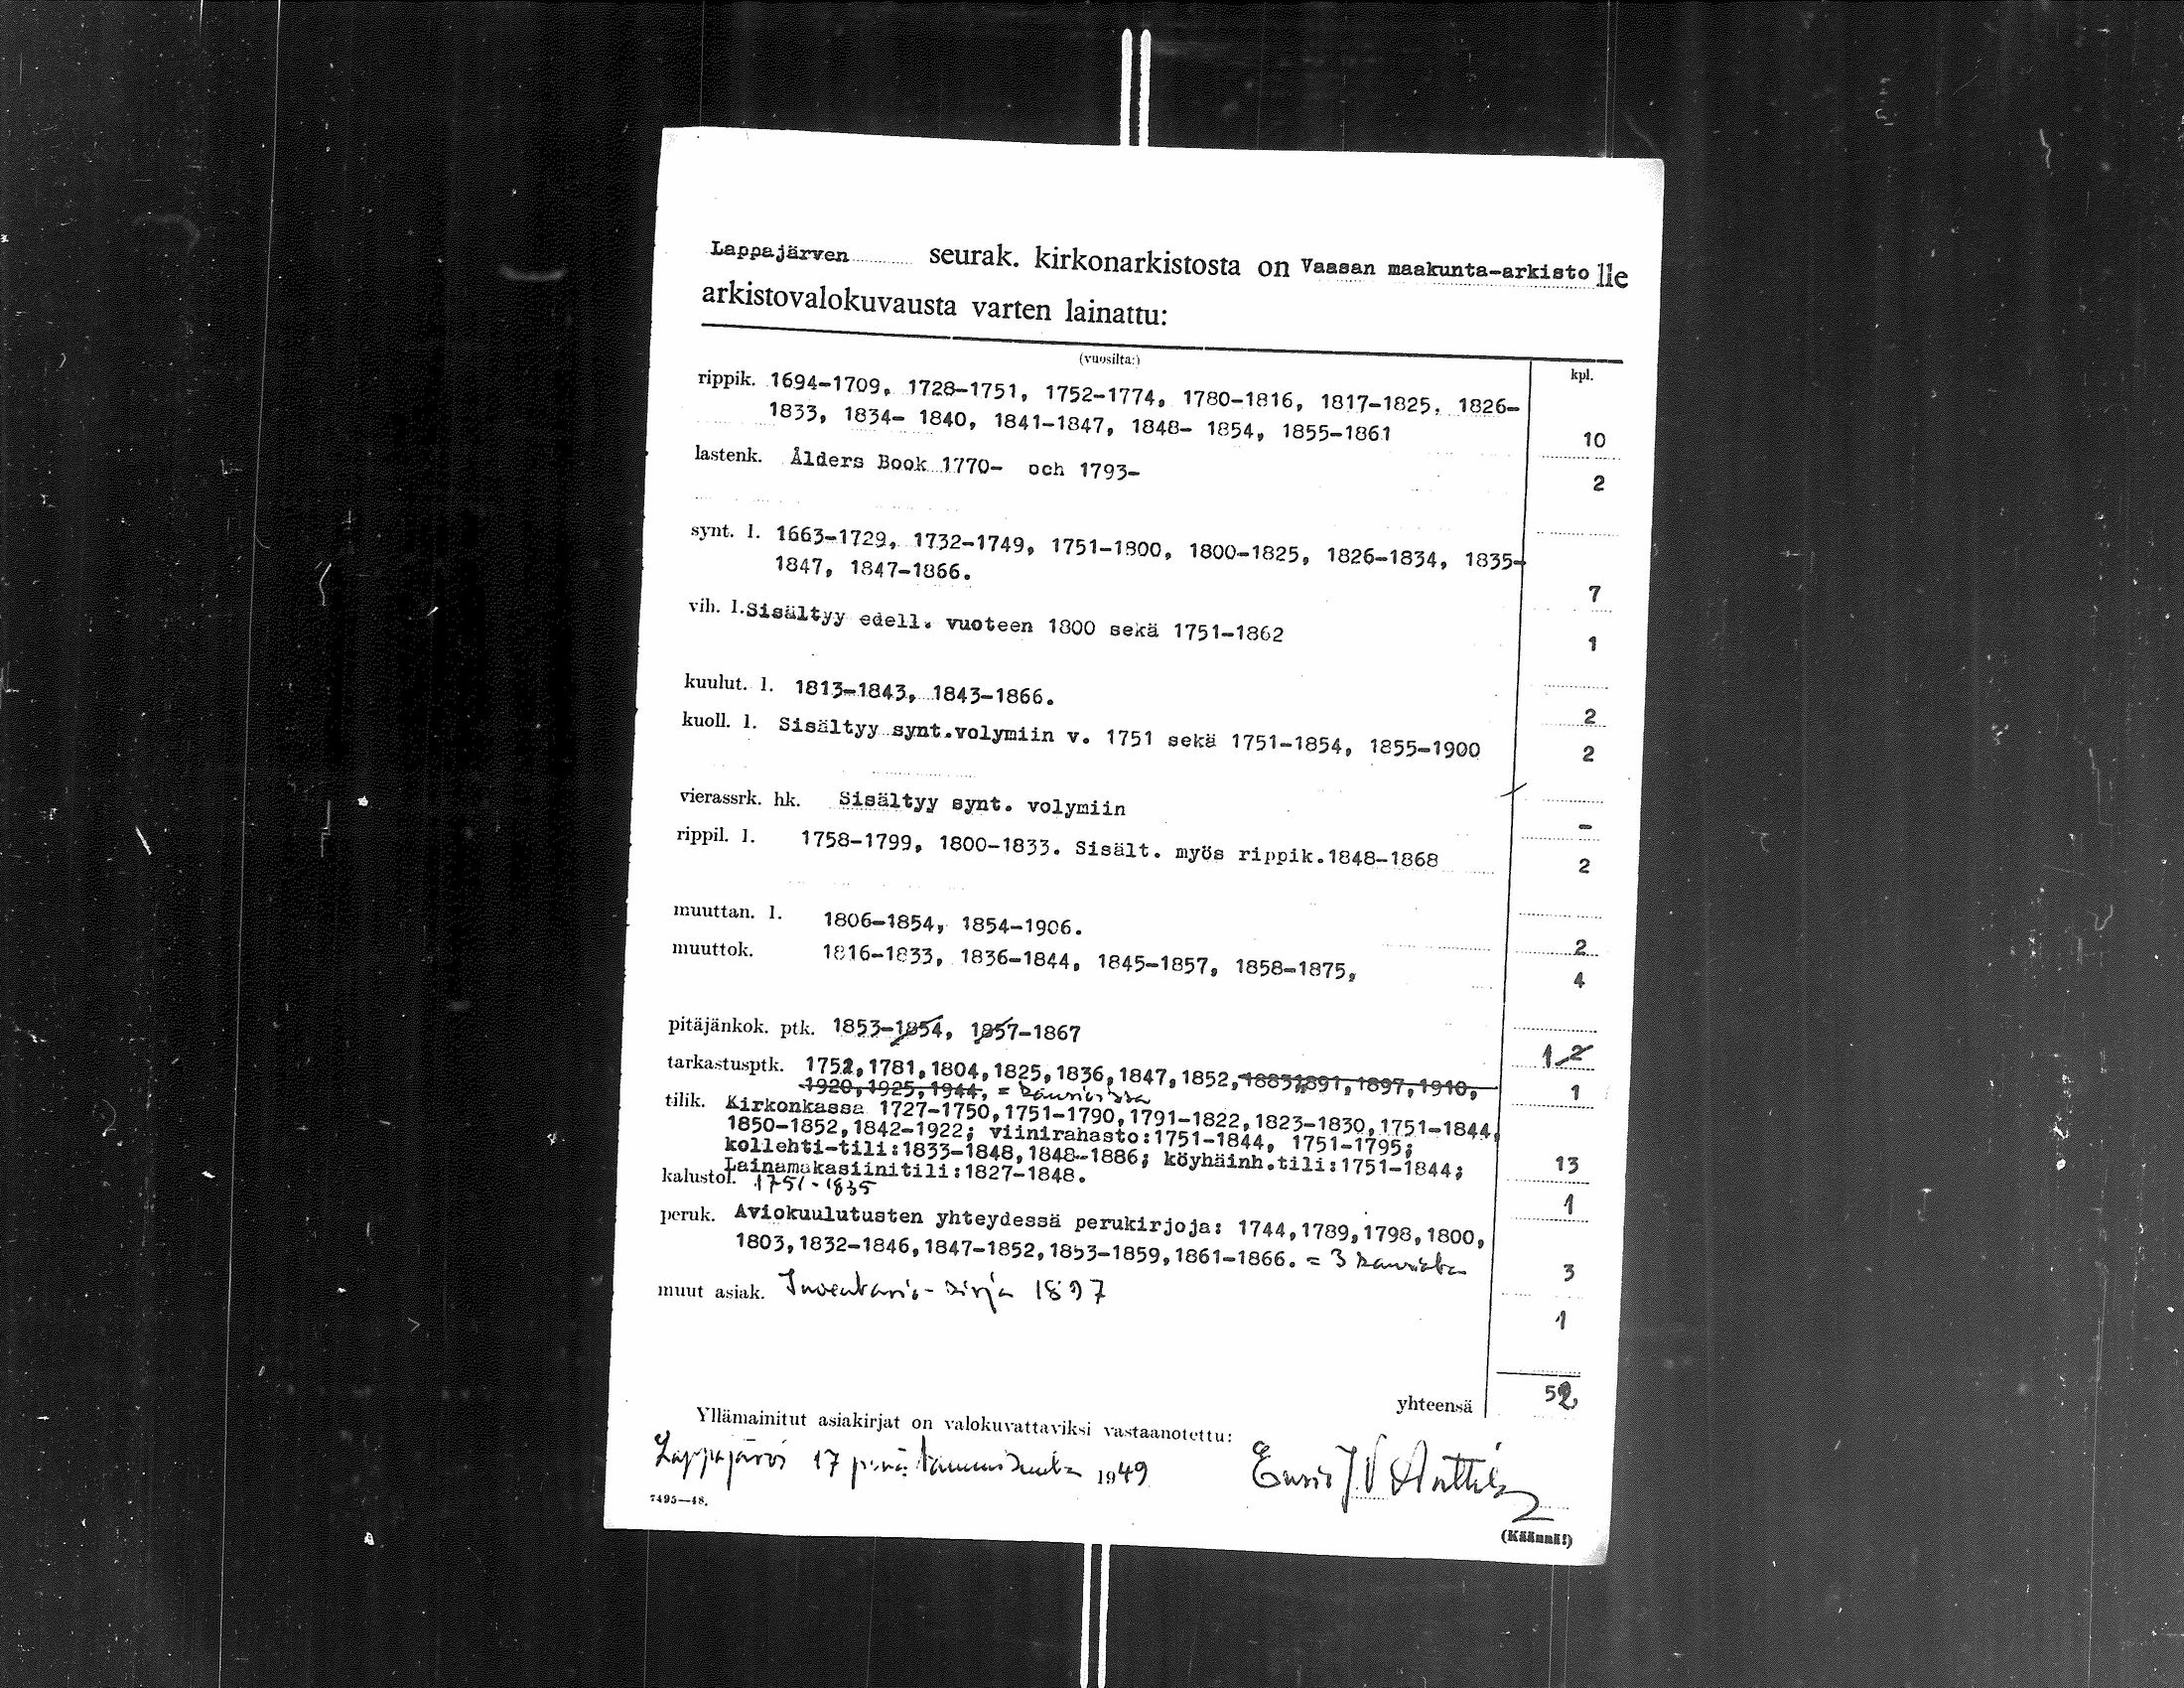 Lappajärven seurak. kirkonarkistosta on Vaasan maakunta-arkisto lle
arkistovalokuvausta varten lainattu:
(vuosilta:) kpl.
rippik. 1694-1709, 1728-1751, 1752-1774, 1780-1816, 1817-1825, 1826-
1833, 1834- 1840, 1841-1847, 1848- 1854, 1855-1861 10
lastenk. Ålders Book 1770- och 1793- 2
synt. l. 1663-1729, 1732-1749, 1751-1800, 1800-1825, 1826-1834, 1835-
1847, 1847-1866. 7
vih. l. Sisältyy edell. vuoteen 1800 sekä 1751-1862 1
kuulut. l. 1813-1843, 1843-1866. 2
kuoll. l. Sisältyy synt.volymiin v. 1751 sekä 1751-1854, 1855-1900 2
vierassrk. hk. Sisältyy synt. volymiin -
rippil. l. 1758-1799, 1800-1833. Sisält. myös rippik.1848-1868 2
muuttan. l. 1806-1854, 1854-1906. 2
muuttok. 1816-1833, 1836-1844, 1845-1857, 1858-1875, 4
pitäjänkok. ptk. 1853-1854, 1857-1867 1 2
tarkastusptk. 1752,1781,1804,1825,1836,1847,1852,1883,1891,1897,1910, 1
1920,1925,1944, =
tilik. Kirkonkassa 1727-1750,1751-1790,1791-1822,1823-1830,1751-1844,
1850-1852,1842-1922; viinirahasto:1751-1844, 1751-1795;
kollehti-tili:1833-1848,1848--1886; köyhäinh.tili:1751-1844; 13
Lainamakasiinitili:1827-1848.
kalustol. 1751-1835 1
peruk. Aviokuulutusten yhteydessä perukirjoja: 1744,1789,1798,1800,
1803,1832-1846,1847-1852,1853-1859,1861-1866. = 3 3
muut asiak. Inventario-kirja 1897 1
yhteensä 52
Yllämainitut asiakirjat on valokuvattaviksi vastaanotettu:
Lappajärvi 17 p:nä tammikuuta 1949
7495—48.
(Käännä!)